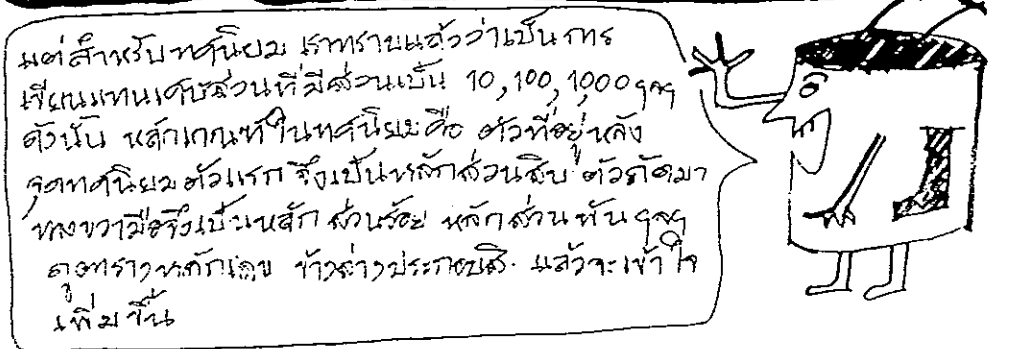 แต่สำหรับทศนิยม เราทราบแล้วว่าเป็นการ
เขียนแทนเศษส่วนที่มีส่วนเป็น 10,100,1,000 ฯลฯ
ดังนั้น หลักเกณฑ์ในทศนิยมคือ ตัวที่อยู่หลัง
จุดทศนิยมตัวแรก จึงเป็นหลักส่วนสิบ ตัวถัดมา
ทางขวามือจึงเป็นหลักส่วนร้อย หลักส่วนพัน ฯลฯ
ดูตารางหลักเลข ข้างล่างประกอบสิ. แล้วจะเข้าใจ
เพิ่มขึ้น